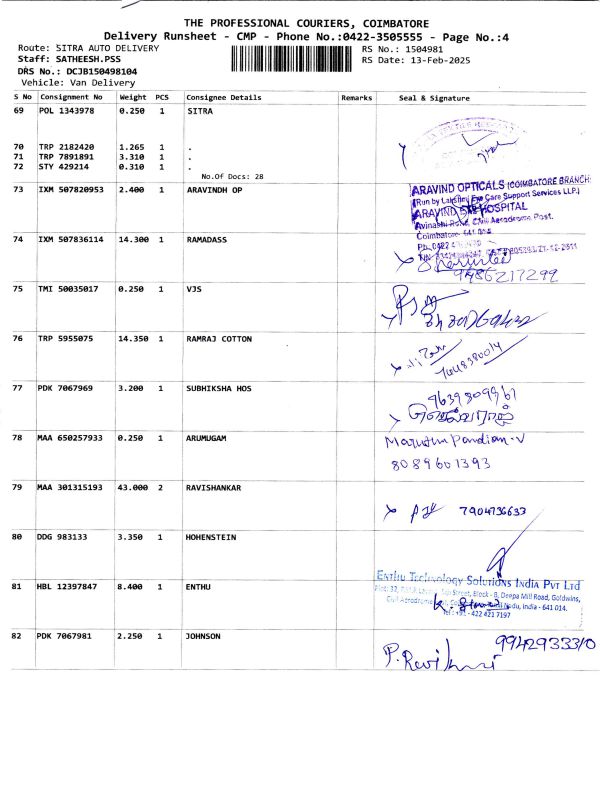 THE PROFESSIONAL COURIERS, COIMBATORE
Delivery Runsheet - CMP - Phone No.:0422-3505555 - Page No.:4
Route: SITRA AUTO DELIVERY RS No.: 1504981
Staff: SATHEESH.PSS RS Date: 13-Feb-2025
DRS No.: DCJB150498104
Vehicle: Van Delivery
S No Consignment No Weight PCS Consignee Details Remarks Seal & Signature
69 POL 1343978 0.250 1 SITRA
70 TRP 2182420 1.265 1 .
71 TRP 7891891 3.310 1 .
72 STY 429214 0.310 1 .
No.Of Docs: 28
73 IXM 507820953 2.400 1 ARAVINDH OP
ARAVIND OPTICALS (COIMBATORE BRANCH)
(Run by Eye Care Support Services LLP.)
ARAVIND HOSPITAL
Avinashi Road, Civil Aerodrome Post,
Coimbatore
74 IXM 507836114 14.300 1 RAMADASS
9486217299
75 TMI 50035017 0.250 1 VJS
76 TRP 5955075 14.350 1 RAMRAJ COTTON
7048380014
77 PDK 7067969 3.200 1 SUBHIKSHA HOS
9639809961
78 MAA 650257933 0.250 1 ARUMUGAM
Maruthu Pandian.V
8089601393
79 MAA 301315193 43.000 2 RAVISHANKAR
7904736633
80 DDG 983133 3.350 1 HOHENSTEIN
81 HBL 12397847 8.400 1 ENTHU
ENTHU Technology Solutions India Pvt Ltd
Street, Block - B, Deepa Mill Road, Goldwins,
Civil Aerodrome Nadu, India - 641 014.
Tel: +91 - 422 421 7197
82 PDK 7067981 2.250 1 JOHNSON
9942933310